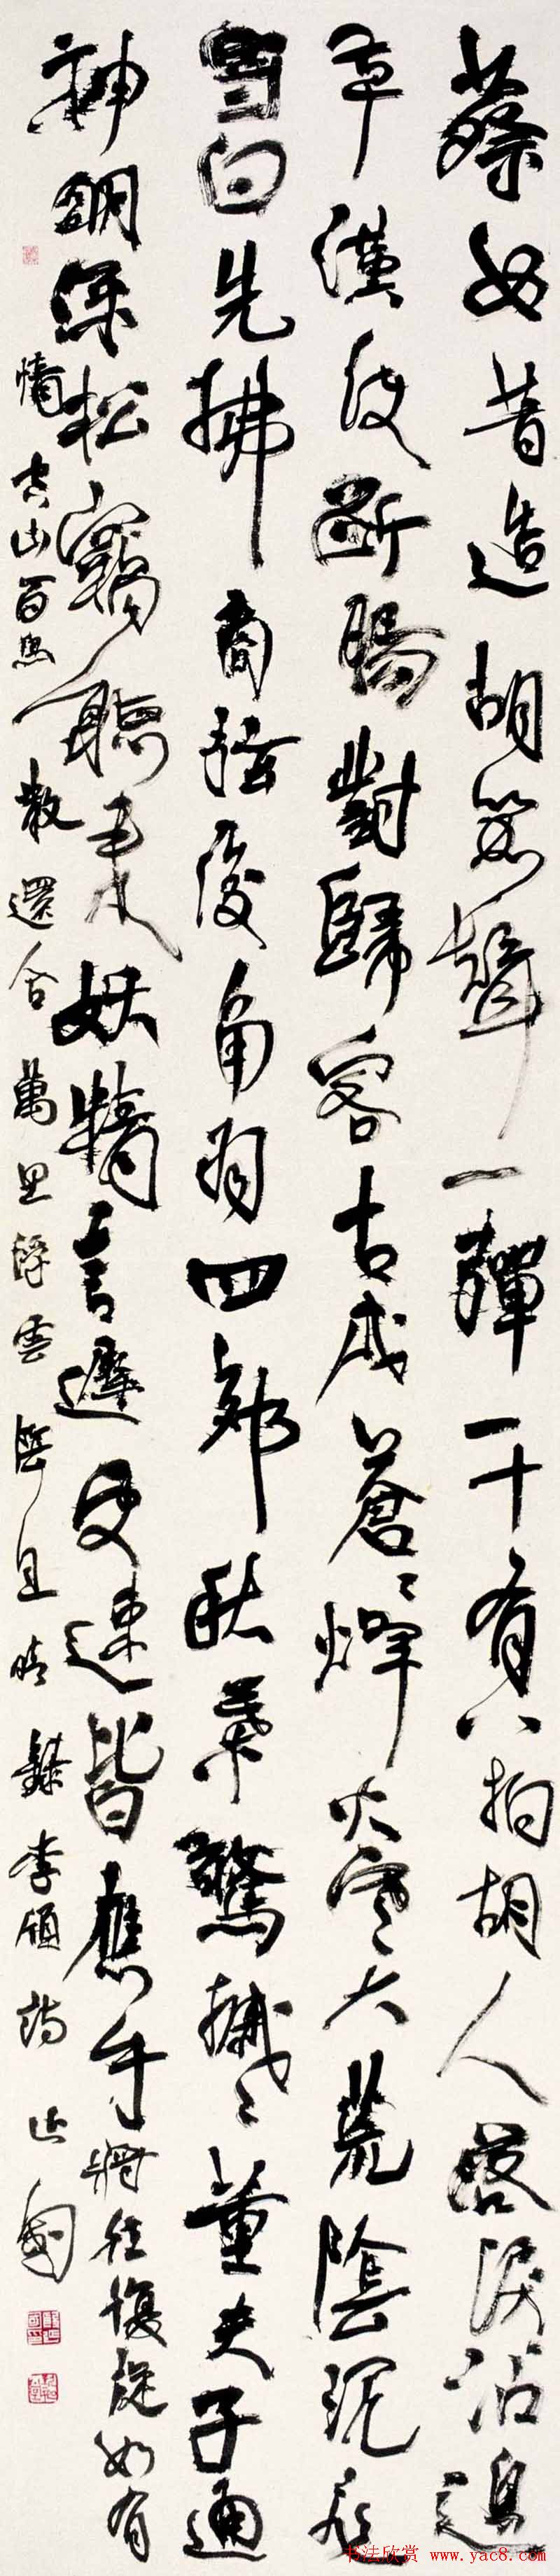 蔡女昔造胡笳聲一彈一十有八拍胡人落淚沾邊
草漢使斷腸對歸客古戍蒼〻烽火寒大荒陰沉飛
雪白先拂商弦後角羽四郊秋葉驚摵〻董夫子通
神明深松竊聽來妖精言遲更速皆應手將往復旋如有
情空山百鳥散還合萬里浮雲陰且晴 錄李頎詩
书法欣赏 www.yac8.com